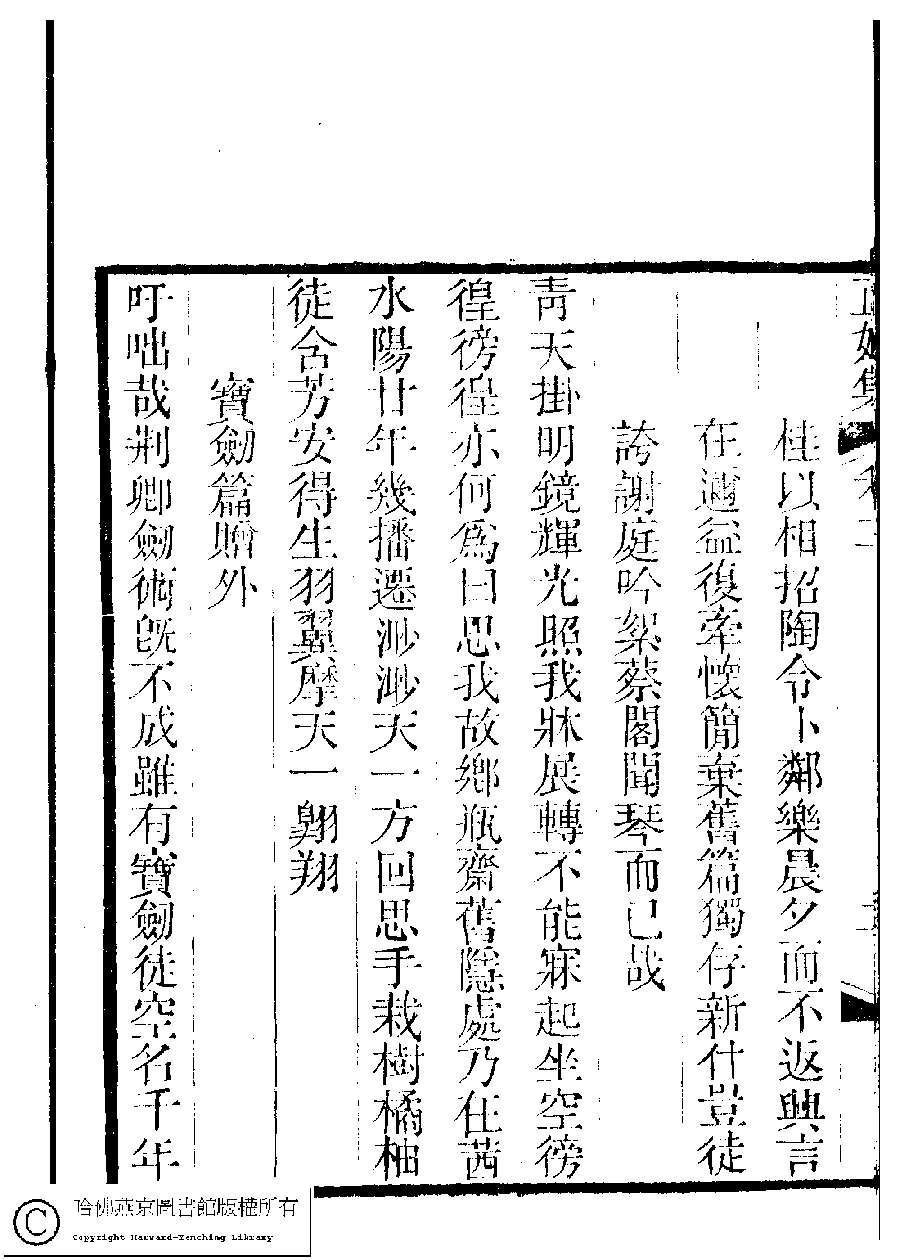 桂以相招陶令卜鄰樂晨夕而不返興言
在邇益復牽懷簡棄舊篇獨存新什豈徒
誇謝庭吟絮蔡閣聞琴而已哉
青天掛明鏡輝光照我牀展轉不能寐起坐空徬
徨徬徨亦何爲曰思我故鄉瓶齋舊隱處乃在茜
水陽廿年幾播遷渺渺天一方回思手栽樹橘柚
徒含芳安得生羽翼摩天一翺翔
寶劒篇贈外
吁咄哉荆卿劒術旣不成雖有寶劒徒空名千年
哈佛燕京圖書館版權所有
Copyright Harvard-Yenching Library